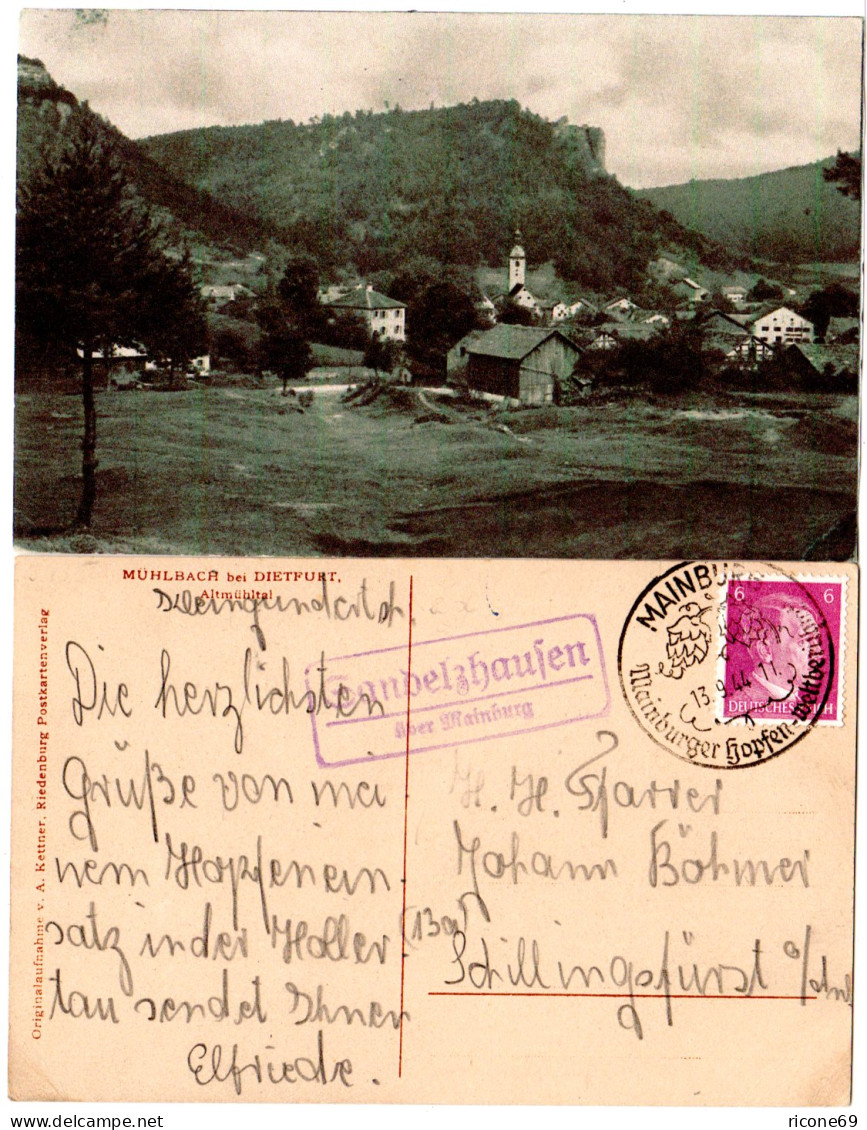 MÜHLBACH bei DIETFURT,
Altmühltal
Originalaufnahme v. A. Kettner, Riedenburg Postkartenverlag
Die herzlichsten
Grüße von mei
nem Hopfenein
satz in der Holler
tau sendet Ihnen
Elfriede.
Sandelzhausen
über Mainburg
MAINBURG
13.9.44.11
Mainburger Hopfen-weltberühmt
6 6
DEUTSCHES REICH
H. H. Pfarrer
Johann Böhmer
(13a)
Schillingsfürst
www.delcampe.net
ricone69